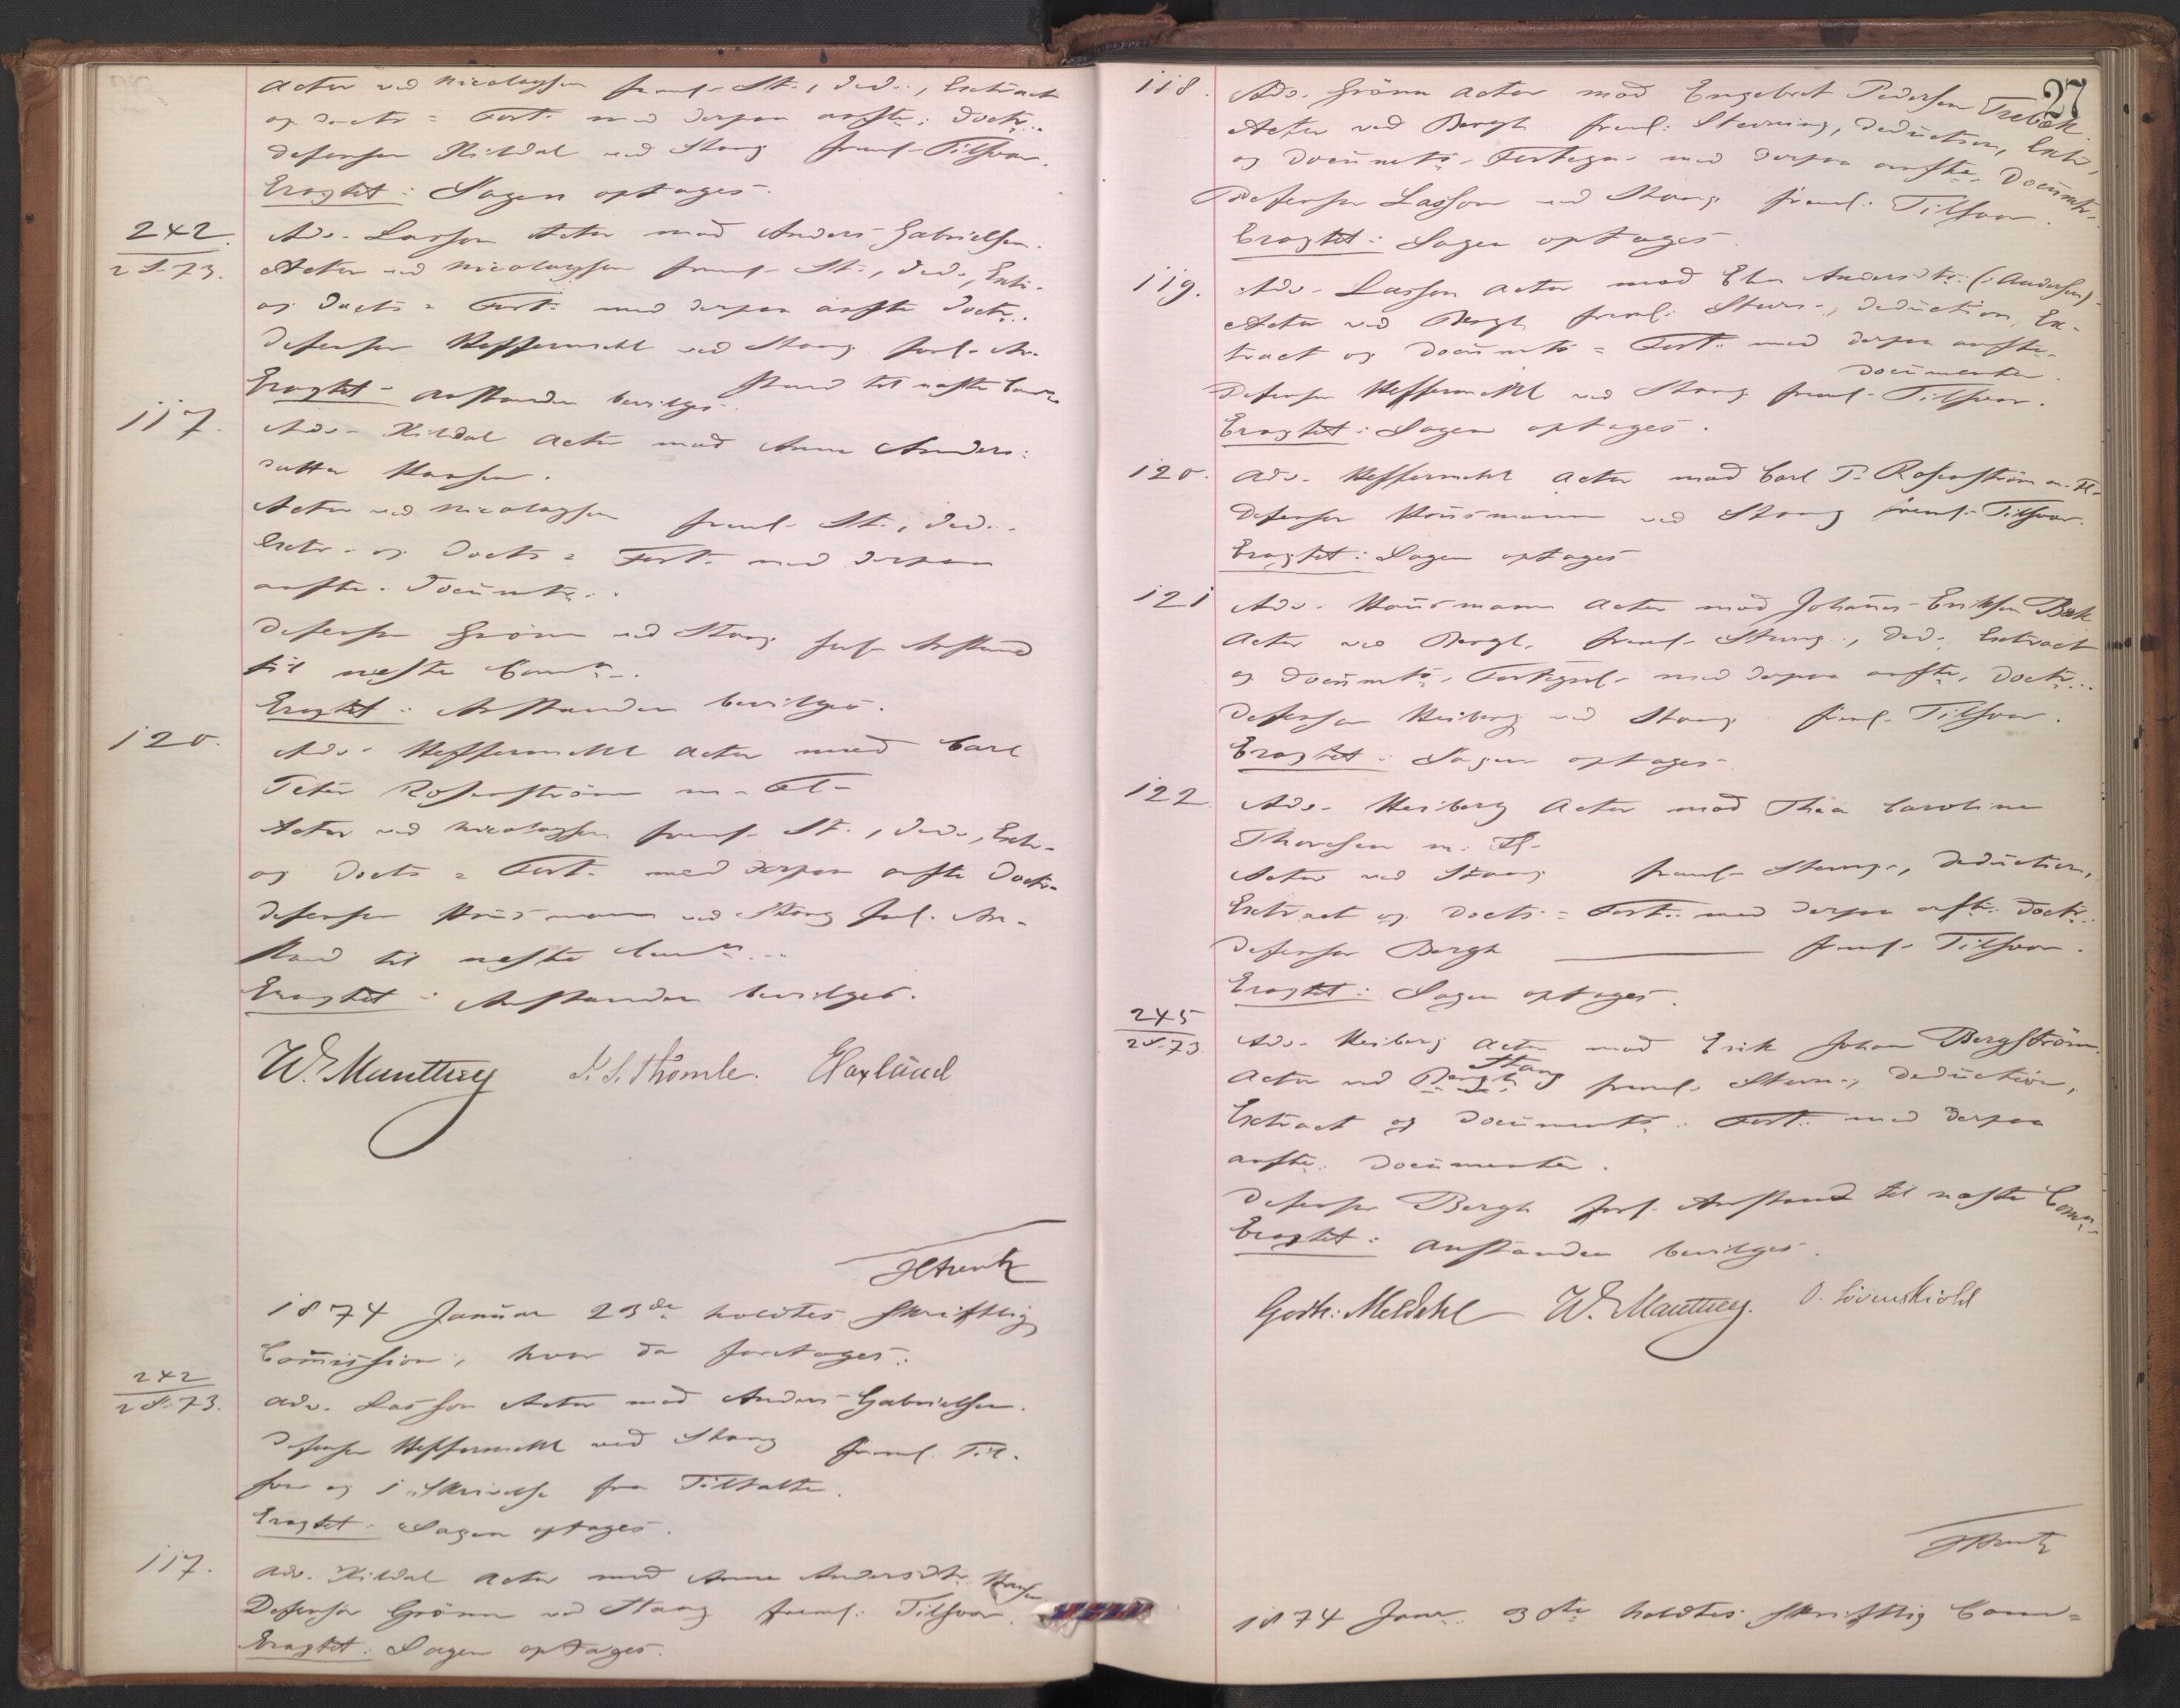 Actor ved Nicolaysen freml. St., Ded., Extract
og Docts = Fort. med derpaa anfte. Doctr.
Defensor Kildal ved Stang freml. Tilsvar.
Eragtet: Sagen optages.
242
2 S. 73.
Adv. Lasson Actor mod Anders Gabrielsen.
Actor ved Nicolaysen freml. St., Ded., Extr.
og Docts = Fort. med derpaa anfte Doctr.
Defensor Heffermehl ved Stang forl. An-
stand til næste Comn.
Eragtet: Anstanden bevilges.
117.
Adv. Kildal Actor mod Anne Anders:
datter Hansen.
Actor ved Nicolaysen freml. St., Ded.
Extr. og Docts = Fort. med derpaa
anfte. Documtr.
Defensor Grönn ved Stang forl. Anstand
til næste Comn.
Eragtet: Anstanden bevilges.
120.
Adv. Heffermehl Actor mod Carl
Peter Rosenström m. Fl.
Actor ved Nicolaysen freml. St., Ded., Extr.
og Docts = Fort. med derpaa anfte Doctr.
Defensor Housmann ved Stang forl. An-
stand til næste Comn.
Eragtet: Anstanden bevilges.
W. Manthey S. S. Thomle. Haxlund
1874 Januar 23de holdtes skriftlig
Commission, hvor da foretages:
242
2 S. 73.
Adv. Lasson Actor mod Anders Gabrielsen.
Defensor Heffermehl ved Stang freml. Til-
svar og 1 Skrivelse fra Tiltalte.
Eragtet: Sagen optages.
117.
Adv. Kildal Actor mod Anne Andersdtr. Hansen
Defensor Grönn ved Stang freml. Tilsvar.
Eragtet: Sagen optages.
27
118.
Adv. Grönn Actor mod Engebret Pedersen Trebæk.
Actor ved Bergh freml. Stevning, Deduction, Extr.,
og Documts. Fortegn. med derpaa anfte. Documtr.
Defensor Lasson ved Stang freml. Tilsvar.
Eragtet: Sagen optages.
119.
Adv. Lasson Actor mod Andersdtr: (: Andersen)
Actor ved Bergh freml. Stevn., Deduction, Ex-
tract og Documts = Fort. med derpaa anfte.
Documenter.
Defensor Heffermehl ved Stang freml. Tilsvar.
Eragtet: Sagen optages.
120.
Adv. Heffermehl Actor mod Carl P. Rosenström m. Fl.
Defensor Housmann ved Stang freml. Tilsvar.
Eragtet: Sagen optages
121
Adv. Housmann Actor mod Johannes Eriksen Bæk
Actor ved Bergh freml. Stevng., Ded., Extract
og Documts. Fortegnl. med derpaa anfte. Doctr.
Defensor Heiberg ved Stang freml. Tilsvar.
Eragtet: Sagen optages.
122.
Adv. Heiberg Actor mod Thea Caroline
Thoresen m. Fl.
Actor ved Stang freml. Stevng., Deduction,
Extract og Docts = Fort. med derpaa anfte. Doctr.
Defensor Bergh freml. Tilsvar.
Eragtet: Sagen optages.
245
2 S. 73.
Adv. Heiberg Actor mod Erik Johan Bergström.
Stang
Actor ved Bergh freml. Stevn., Deduction,
Extract og Documents. Fort. med derpaa
anfte. Documenter.
Defensor Bergh forl. Anstand til næste Comn.
Eragtet: Anstanden bevilges.
Goth: Meldahl W. Manthey. O. Lövenskiold
1874 Janr. 30te holdtes skriftlig Com=